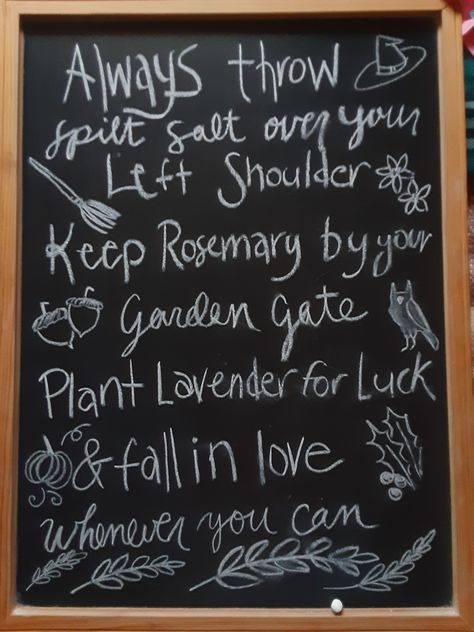 Always throw
spilt salt over your
Left Shoulder
Keep Rosemary by your
Garden Gate
Plant Lavender for Luck
& fall in love
whenever you can